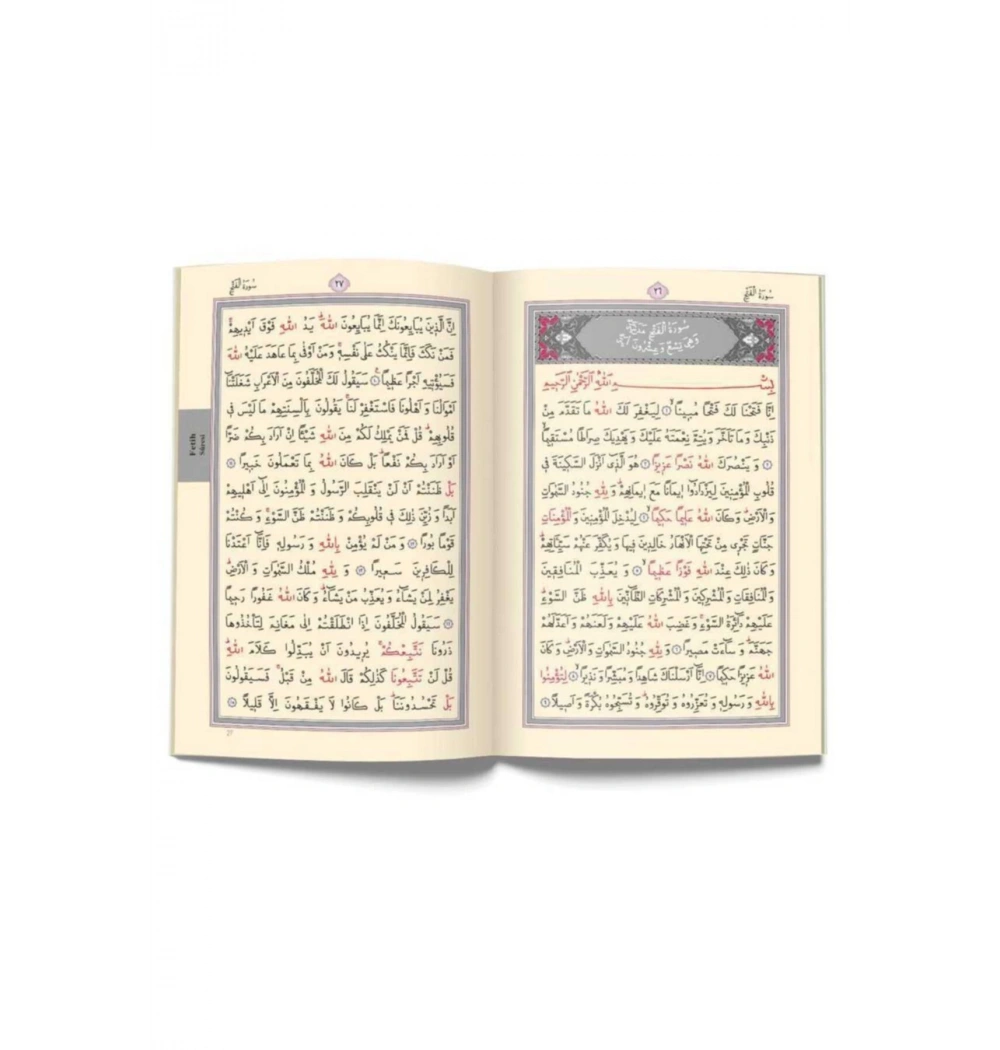 سُورَةُ الْفَتْحِ
٢٦
سُورَةُ الْفَتْحِ مَدَنِيَّةٌ
وَهِيَ تِسْعٌ وَعِشْرُونَ اٰيَةً
بِسْمِ اللّٰهِ الرَّحْمٰنِ الرَّحِيمِ
اِنَّا فَتَحْنَا لَكَ فَتْحًا مُبِينًاۙ ﴿١﴾ لِيَغْفِرَ لَكَ اللّٰهُ مَا تَقَدَّمَ مِنْ
ذَنْبِكَ وَمَا تَاَخَّرَ وَيُتِمَّ نِعْمَتَهُ عَلَيْكَ وَيَهْدِيَكَ صِرَاطًا مُسْتَقِيمًاۙ
﴿٢﴾ وَيَنْصُرَكَ اللّٰهُ نَصْرًا عَزِيزًا ﴿٣﴾ هُوَ الَّذِى اَنْزَلَ السَّكِينَةَ فِى
قُلُوبِ الْمُؤْمِنِينَ لِيَزْدَادُوا اِيمَانًا مَعَ اِيمَانِهِمْۜ وَلِلّٰهِ جُنُودُ السَّمٰوَاتِ
وَالْاَرْضِۜ وَكَانَ اللّٰهُ عَلِيمًا حَكِيمًاۙ ﴿٤﴾ لِيُدْخِلَ الْمُؤْمِنِينَ وَالْمُؤْمِنَاتِ
جَنَّاتٍ تَجْرِى مِنْ تَحْتِهَا الْاَنْهَارُ خَالِدِينَ فِيهَا وَيُكَفِّرَ عَنْهُمْ سَيِّـَٔاتِهِمْۜ
وَكَانَ ذٰلِكَ عِنْدَ اللّٰهِ فَوْزًا عَظِيمًاۙ ﴿٥﴾ وَيُعَذِّبَ الْمُنَافِقِينَ
وَالْمُنَافِقَاتِ وَالْمُشْرِكِينَ وَالْمُشْرِكَاتِ الظَّٓانِّينَ بِاللّٰهِ ظَنَّ السَّوْءِۜ
عَلَيْهِمْ دَٓائِرَةُ السَّوْءِۚ وَغَضِبَ اللّٰهُ عَلَيْهِمْ وَلَعَنَهُمْ وَاَعَدَّ لَهُمْ
جَهَنَّمَۜ وَسَٓاءَتْ مَصِيرًا ﴿٦﴾ وَلِلّٰهِ جُنُودُ السَّمٰوَاتِ وَالْاَرْضِۜ وَكَانَ
اللّٰهُ عَزِيزًا حَكِيمًا ﴿٧﴾ اِنَّٓا اَرْسَلْنَاكَ شَاهِدًا وَمُبَشِّرًا وَنَذِيرًاۙ ﴿٨﴾ لِتُؤْمِنُوا
بِاللّٰهِ وَرَسُولِهِ وَتُعَزِّرُوهُ وَتُوَقِّرُوهُۜ وَتُسَبِّحُوهُ بُكْرَةً وَاَصِيلًا ﴿٩﴾
سُورَةُ الْفَتْحِ
٢٧
اِنَّ الَّذِينَ يُبَايِعُونَكَ اِنَّمَا يُبَايِعُونَ اللّٰهَۜ يَدُ اللّٰهِ فَوْقَ اَيْدِيهِمْۚ
فَمَنْ نَكَثَ فَاِنَّمَا يَنْكُثُ عَلٰى نَفْسِهِۚ وَمَنْ اَوْفٰى بِمَا عَاهَدَ عَلَيْهُ اللّٰهَ
فَسَيُؤْتِيهِ اَجْرًا عَظِيمًاۙ ﴿١٠﴾ سَيَقُولُ لَكَ الْمُخَلَّفُونَ مِنَ الْاَعْرَابِ شَغَلَتْنَٓا
اَمْوَالُنَا وَاَهْلُونَا فَاسْتَغْفِرْ لَنَاۚ يَقُولُونَ بِاَلْسِنَتِهِمْ مَا لَيْسَ فِى
قُلُوبِهِمْۜ قُلْ فَمَنْ يَمْلِكُ لَكُمْ مِنَ اللّٰهِ شَيْئًا اِنْ اَرَادَ بِكُمْ ضَرًّا
اَوْ اَرَادَ بِكُمْ نَفْعًاۜ بَلْ كَانَ اللّٰهُ بِمَا تَعْمَلُونَ خَبِيرًا ﴿١١﴾
بَلْ ظَنَنْتُمْ اَنْ لَنْ يَنْقَلِبَ الرَّسُولُ وَالْمُؤْمِنُونَ اِلٰٓى اَهْلِيهِمْ
اَبَدًا وَزُيِّنَ ذٰلِكَ فِى قُلُوبِكُمْ وَظَنَنْتُمْ ظَنَّ السَّوْءِۚ وَكُنْتُمْ
قَوْمًا بُورًا ﴿١٢﴾ وَمَنْ لَمْ يُؤْمِنْ بِاللّٰهِ وَرَسُولِهِ فَاِنَّٓا اَعْتَدْنَا
لِلْكَافِرِينَ سَعِيرًا ﴿١٣﴾ وَلِلّٰهِ مُلْكُ السَّمٰوَاتِ وَالْاَرْضِۜ
يَغْفِرُ لِمَنْ يَشَٓاءُ وَيُعَذِّبُ مَنْ يَشَٓاءُۜ وَكَانَ اللّٰهُ غَفُورًا رَحِيمًا
﴿١٤﴾ سَيَقُولُ الْمُخَلَّفُونَ اِذَا انْطَلَقْتُمْ اِلٰى مَغَانِمَ لِتَأْخُذُوهَا
ذَرُونَا نَتَّبِعْكُمْۚ يُرِيدُونَ اَنْ يُبَدِّلُوا كَلَامَ اللّٰهِۜ
قُلْ لَنْ تَتَّبِعُونَا كَذٰلِكُمْ قَالَ اللّٰهُ مِنْ قَبْلُۚ فَسَيَقُولُونَ
بَلْ تَحْسُدُونَنَاۜ بَلْ كَانُوا لَا يَفْقَهُونَ اِلَّا قَلِيلًا ﴿١٥﴾
27
Fetih
Sûresi